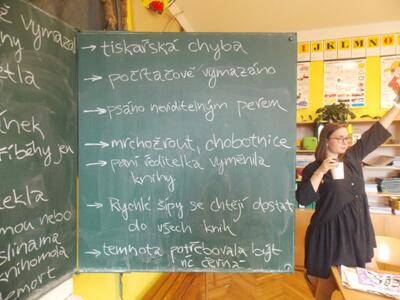 vymazal
ny
ekla
ínek
říběhy jen
řekla
mou nebo
slinama
knihomola
→ tiskařská chyba
→ počítačově vymazáno
→ psáno neviditelným perem
→ mrchožrout, chobotnice
→ paní ředitelka vyměnila
knihy
→ Rychlé šípy se chtějí dostat
do všech knih
→ temnota potřebovala být
víc černá
I J K L M N O